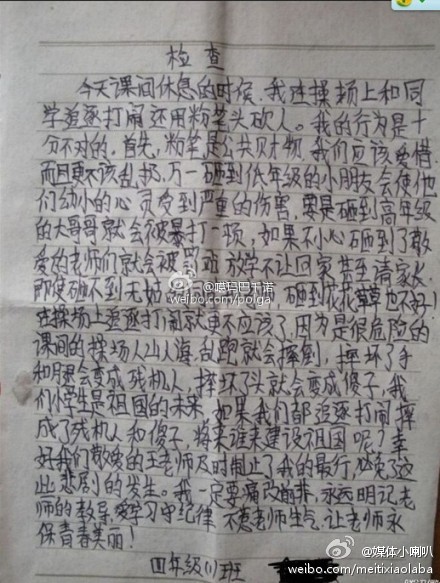 检查
今天课间休息的时候,我连操场上和同
学追逐打闹还用粉笔头砍人。我的行为是十
分不对的。首先,粉笔是公共财物,我们应该爱惜
而且更不该乱扔,万一砸到低年级的小朋友会使他
们幼小的心灵受到严重的伤害,要是砸到高年级
的大哥哥就会被暴打一场,如果不小心砸到了敬
爱的老师们就会被罚站 放学不让回家 甚至请家长
即使砸不到 砸到花花草草也不
操场上追逐打闹就更不应该了,因为是很危险的
课间的操场人山人海,乱跑就会摔倒,摔坏了手
和腿会变成残机人,摔坏了头就会变成傻子,我
们小学生是祖国的未来,如果我们都追逐打闹摔
成了残机人和傻子,将来谁来建设祖国呢?幸
好我们敬爱的王老师及时制止了我的最行,避免了这
些悲剧的发生。我一定要痛改前非,永远明记老
师的教导,爱学习守纪律 不惹老师生气,让老师永
保青春美丽!
四年级(1)班
@嘌码巴千诺
weibo.com/polga
@媒体小喇叭
weibo.com/meitixiaolaba